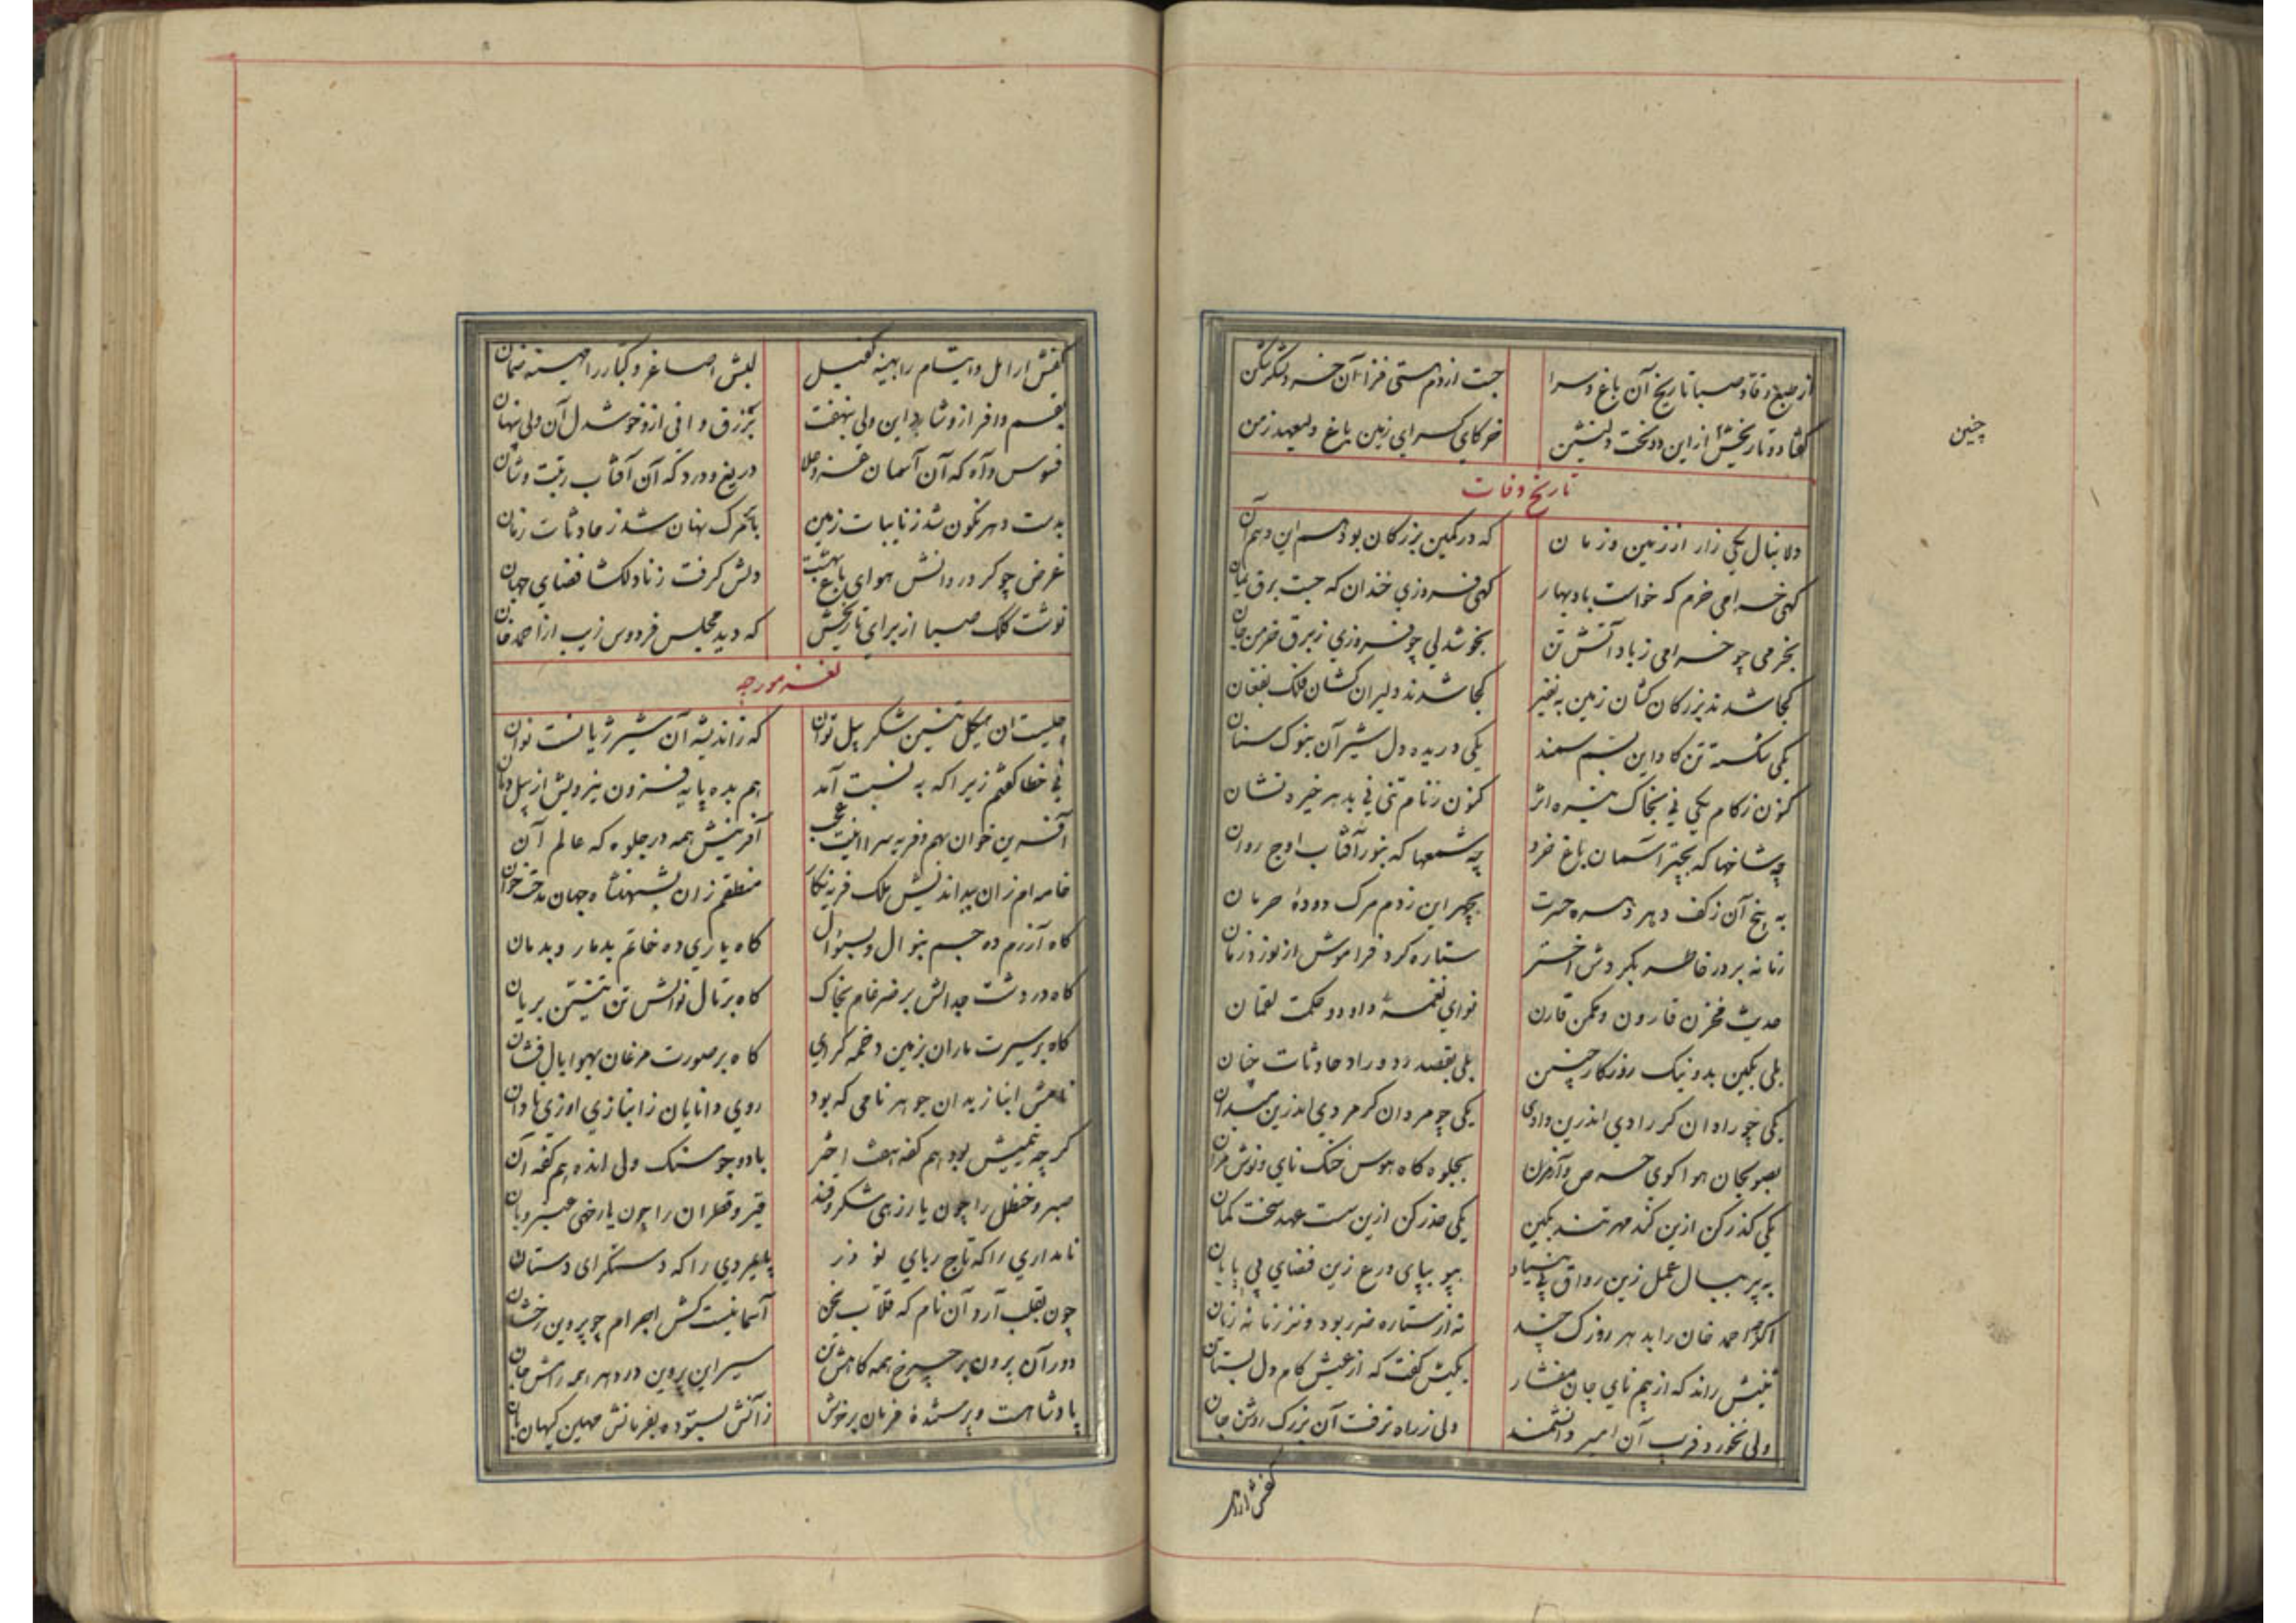 از طبع وقاد صبا تاریخ آن باغ و سرا جست از دم هستی فزا آن خسرو لشکر شکن
گفتا دو تاریخش از این دو تخت دلنشین خرگاه کسرای زمین باغ ولیعهد زمن
چنین
تاریخ وفات
دلا بنال یکی زار از زمین و زمان که در کمین بزرگان بود هم این و هم آن
گهی خرامی خرم که خواست باد بهار گهی فروزی خندان که جست برق یمان
بخرمی چو خرامی ز باد آتش تن بخوشدلی چو فروزی ز برق خرمن جان
کجا شدند بزرگان کشان زمین به نفیر کجا شدند دلیران کشان فلک بفغان
یکی شکسته تن گاو این بسم سمند یکی دریده دل شیر آن بنوک سنان
کنون ز کام یکی نی بخاک تیره اثر کنون ز نام تنی نی بدهر خیره نشان
چه شاخها که بچتر آسمان باغ خرد چه شمعها که بنور آفتاب اوج روان
به پنج آن ز کف دهر دسره حسرت بچهر این ز دم مرگ دودهٔ حرمان
زمانه برد ز خاطر بگردش اختر ستاره کرد فراموش از نوز و زمان
حدیث مخزن قارون و مکمن قارن نوای نغمهٔ داود و حکمت لقمان
بلی بکین بد و نیک روزگار چنین بلی بقصد رد و راد حادثات چنان
یکی چو رادان کر رادی اندرین وادی یکی چو مردان کر مردی اندرین میدان
بصولجان هوا گوی حرص و آز مران بجلوه گاه هوس خنگ نای و نوش مران
یکی گذر کن ازین کند مهر تند بکین یکی حذر کن ازین سست عهد سخت کمان
به پر ببال عمل زین رواق بی بنیاد بپو بپای ورع زین فضای بی پایان
اگرچه احمد خان را بدهر روزک چند نه از ستاره ضرر بود و نز زمانه زیان
بمیش راند که از بیم نای جان مفشار بکیش گفت که از عیش کام دل بستان
ولی نخورد فریب آن امیر دانشمند ولی ز راه نرفت آن بزرگ روشن جان
کفش ارامل
کفش ارامل و ایتام را بهینه کفیل لبش اصاغر و کبار را مهینه ضمان
بقسم وافر ازو شاد این ولی بنهفت برزق وافی ازو خوشدل آن ولی پنهان
فسوس و آه که آن آسمان عز و علا دریغ و درد که آن آفتاب رتبت و شان
بدست دهر نگون شد ز نایبات زمین بابر مرگ نهان شد ز حادثات زمان
غرض چو کرد در دانش هوای باغ بهشت دلش گرفت ز نادلگشا فضای جهان
نوشت کلک صبا از برای تاریخش که دید مجلس فردوس زیب از احمد خان
لغز مورچه
چیست آن هیکل تنین شکر پیل توان که ز اندیشه آن شیر ژیانست نوان
نی خطا گفتم زیرا که به نسبت آمد هم بده پایه فزون نیز ویش از پیل دمان
آفرین خوان بهم و فربه سرا اینت عجب آفرینش همه در جلوه که عالم آن
خامه ام زان بد اندیش ملک فربه نگار منطقم زان بشهنشاه جهان مدحت خوان
گاه آزرم ده جسم بنوال و بسؤال گاه یاری ده خاتم بدمار و بدمان
گاه در دشت جدالش بر ضرغام بخاک گاه بر تال نوالش تن تنین بریان
گاه بر سیرت ماران بزمین دخمه گرای گاه بر صورت مرغان بهوا بال فشان
نامش انباز بدان جوهر نامی که بود روی دانایان ز انبازی او زی نادان
گرچه نیمیش بود هم کفه هفت اختر با دو جو سنگ ولی انده هم کفه آن
صبر و حنظل را چون یار زهی شکر و قند قیر و قطران را چون یار خهی عنبر و بان
نامداری را که تاج ربای نوذر پایمردی را که دستگرای دستان
چون بقلب آرد آن نام که قلاب سخن آسمانیست کش اجرام چو پروین رخشان
دور آن برون بر چرخ همه کاهش تن سیر این پروین در دهر همه رامش جان
پادشاهست و پرستندهٔ فرمان بر خوش ز آتش بستوده بفرمانش مهین کیهان بان